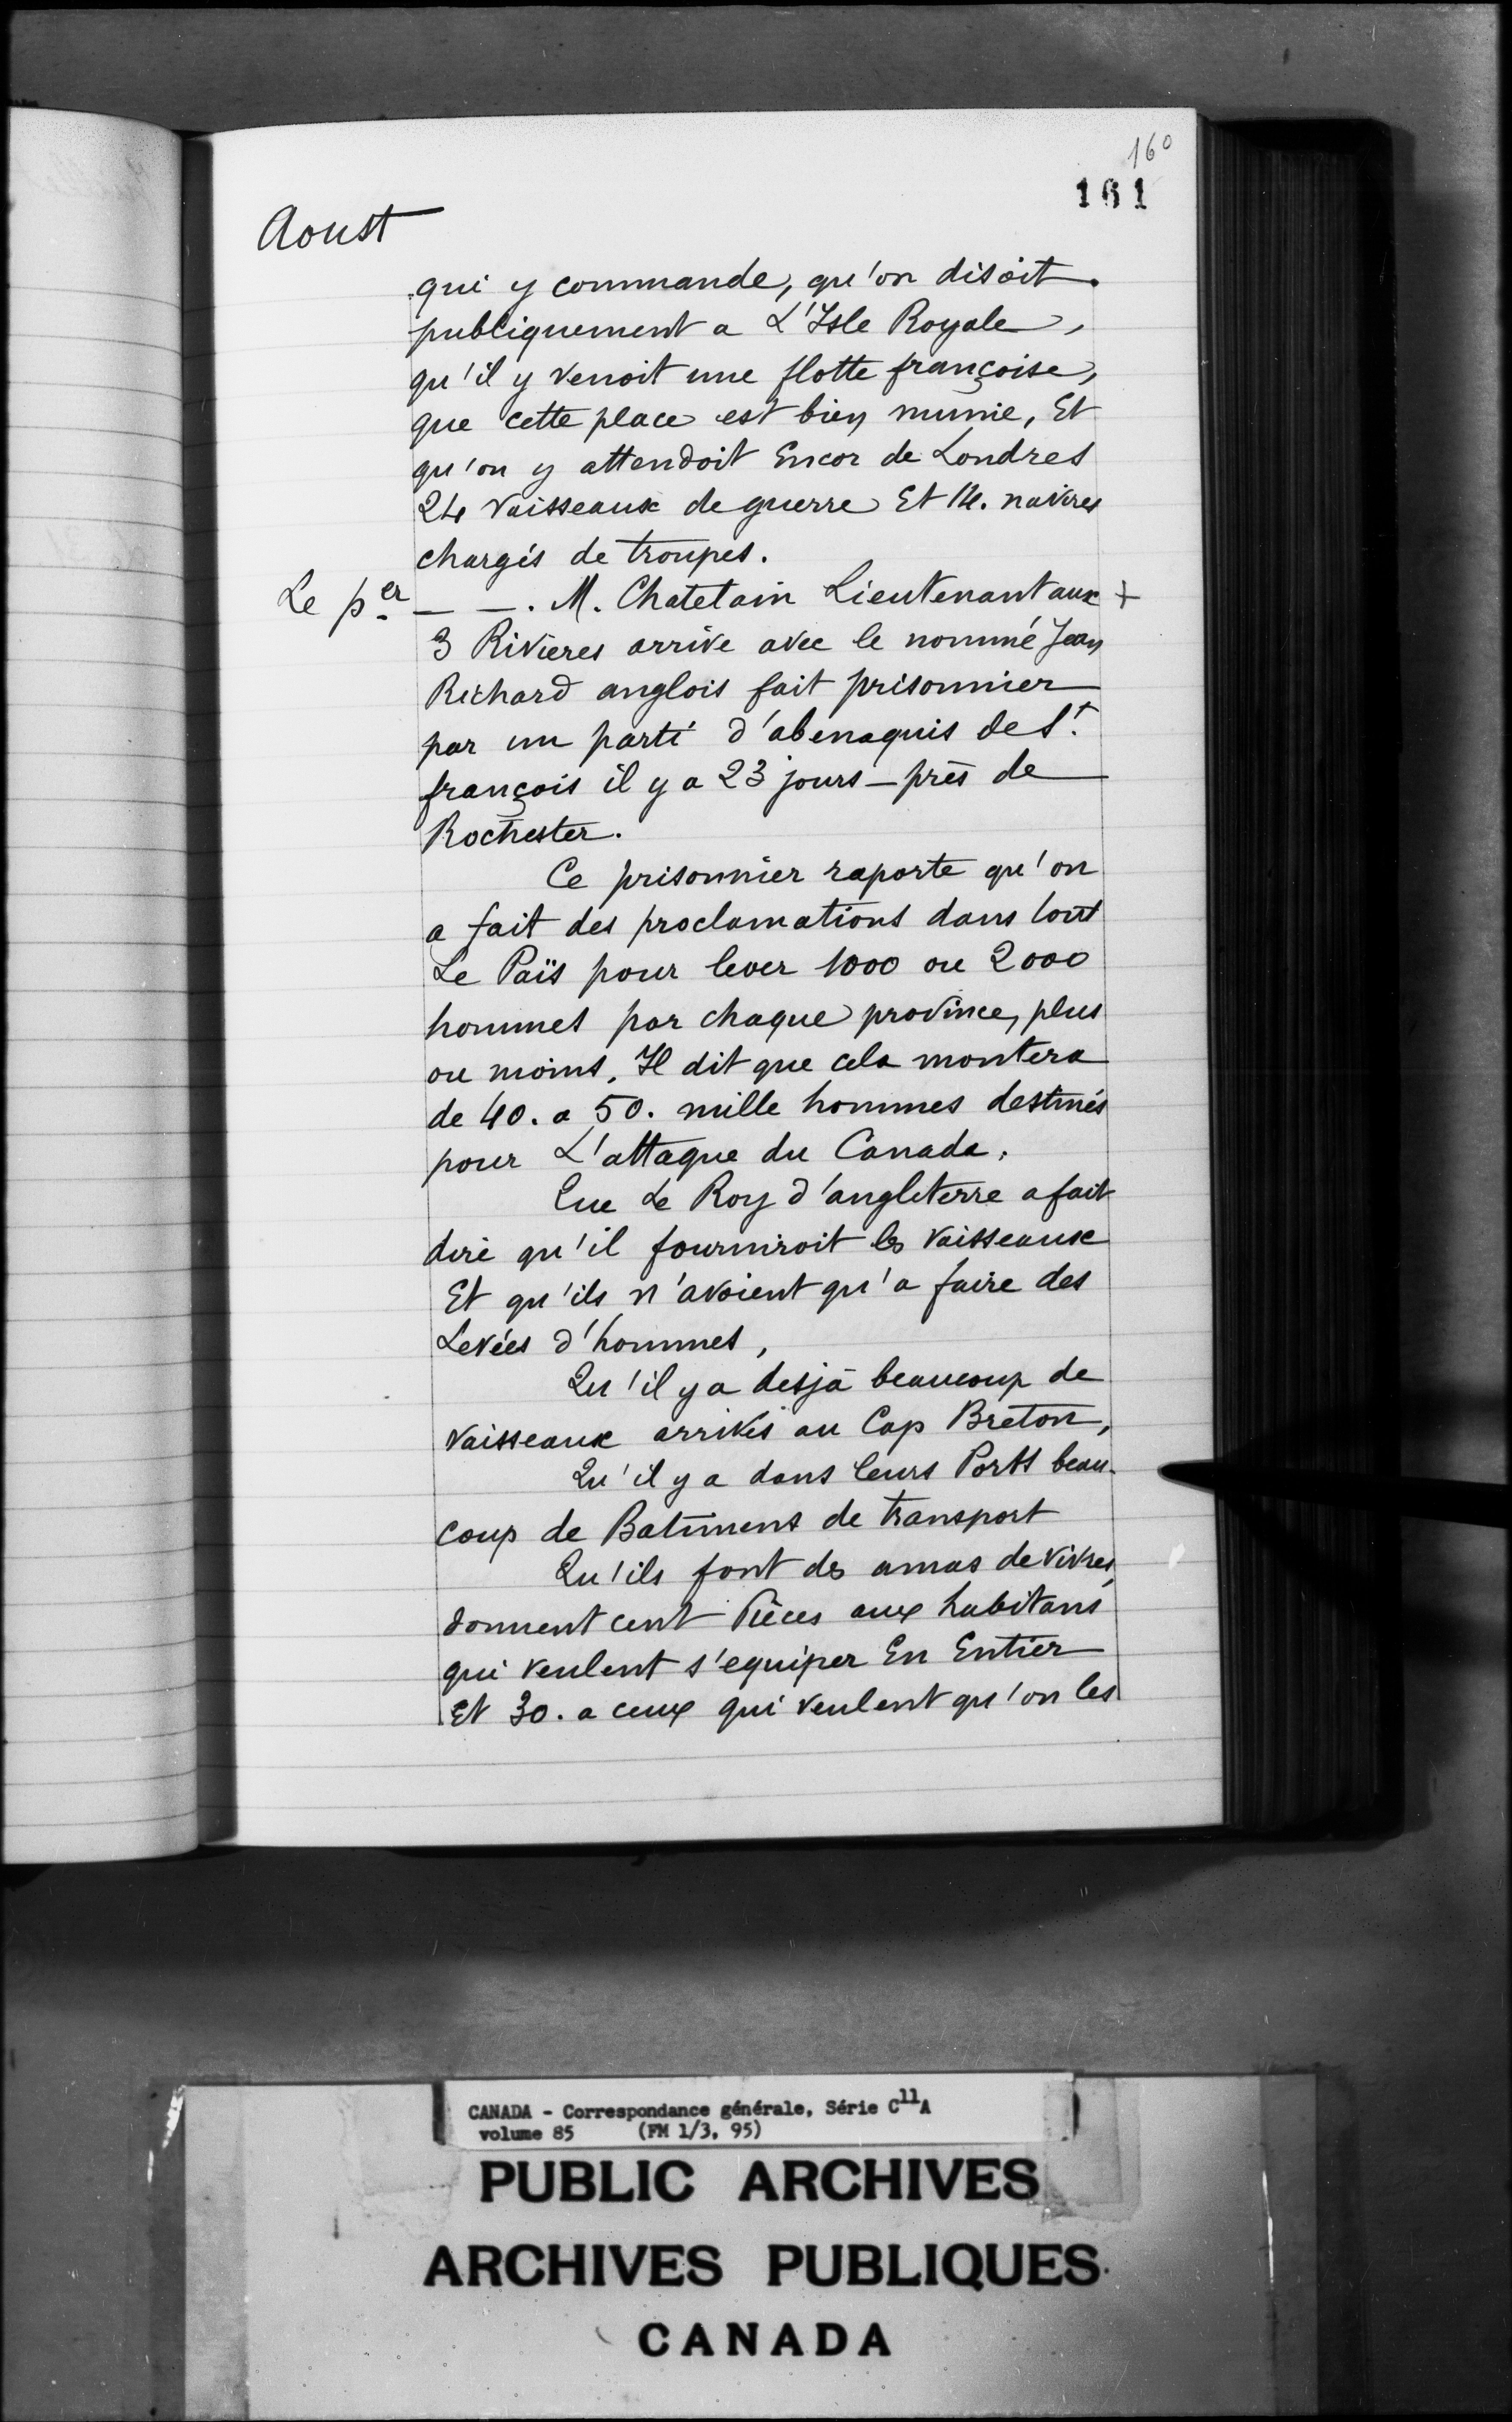 160
161
Aoust
qui y commande, qu'on disoit
publiquement a L'Isle Royale,
qu'il y venoit une flotte françoise,
que cette place est bien munie, Et
qu'on y attendoit Encor de Londres
24 vaisseaux de guerre Et 14. navires
chargés de troupes.
Le p.er — —. M. Chatelain Lieutenant aux +
3 Rivieres arrive avec le nommé Jean
Richard anglois fait prisonnier
par un parti d'abenaquis de St.
françois il y a 23 jours — près de
Rochester.
Ce prisonnier raporte qu'on
a fait des proclamations dans tout
Le Païs pour lever 1000 ou 2000
hommes par chaque province, plus
ou moins. Il dit que cela montera
de 40. a 50. mille hommes destinés
pour L'attaque du Canada.
Que Le Roy d'angleterre a fait
dire qu'il fourniroit les vaisseaux
Et qu'ils n'avoient qu'a faire des
Levées d'hommes,
Qu'il y a desja beaucoup de
vaisseaux arrivés au Cap Breton,
Qu'il y a dans leurs Ports beau-
coup de Batimens de transport
Qu'ils font des amas de vivres,
donnent cent Pièces aux habitans
qui veulent s'equiper En Entier
Et 30. a ceux qui veulent qu'on les
CANADA - Correspondance générale, Série C11A
volume 85 (FM 1/3, 95)
PUBLIC ARCHIVES
ARCHIVES PUBLIQUES
CANADA